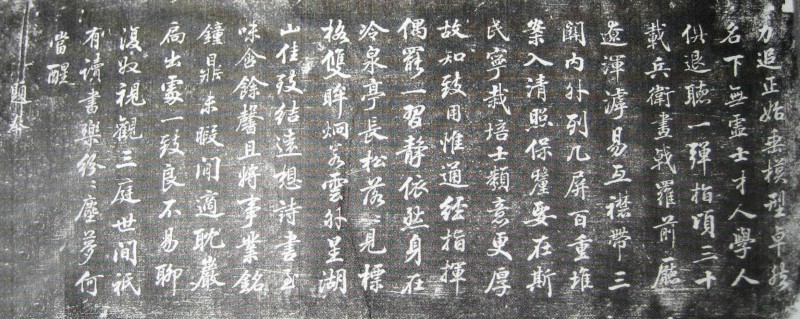 力追正始垂模型卓犖
名下無虛士才人學人
俱退聽一彈指頃三十
載兵衛畫戟羅前廳
渾滹易互襟帶三
關內外列几屏百重堆
案入清照保釐要在斯
民寧栽培士類意更厚
故知致用惟通經指揮
偶罷一習靜依然身在
冷泉亭長松落〻見標
格雙眸炯若雲外星湖
山佳致結遠想詩書至
味含餘馨且將事業銘
鐘鼎未暇閒適耽巖
扃出處一致良不易聊
復奴視觀三庭世間祇
有讀書樂紛〻塵夢何
當醒
題奉